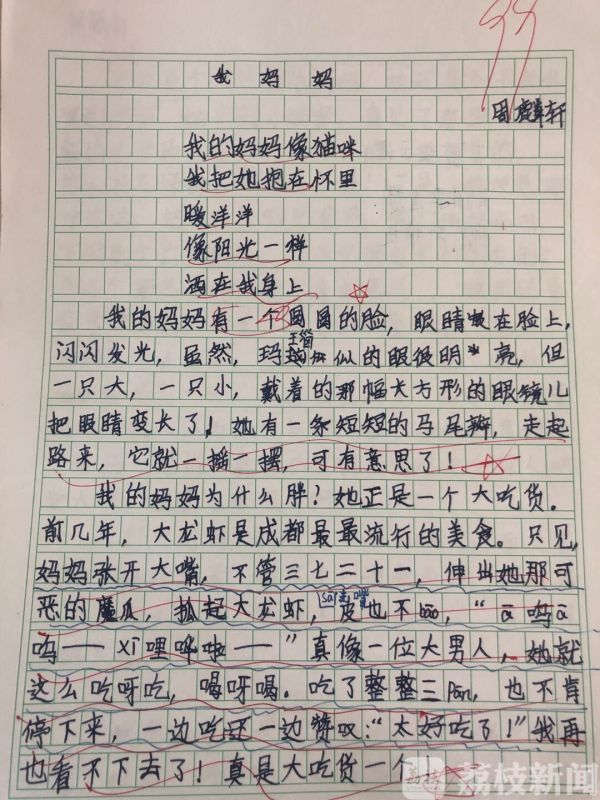 99
我 妈 妈
周麟轩
我的妈妈像猫咪
我把她抱在怀里
暖洋洋
像阳光一样
洒在我身上
我的妈妈有一个圆圆的脸，眼睛嵌在脸上，
闪闪发光，虽然，玛瑙似的眼很明亮，但
一只大，一只小，戴着的那幅大方形的眼镜儿
把眼睛变长了！她有一条短短的马尾辫，走起
路来，它就一摇一摆，可有意思了！
我的妈妈为什么胖？她正是一个大吃货。
前几年，大龙虾是成都最最流行的美食。只见，
妈妈张开大嘴，不管三七二十一，伸出她那可
恶的魔爪，抓起大龙虾，皮也不bāo，“ā呜ā
呜——xī哩哗啦——”真像一位大男人，她就
这么吃呀吃，喝呀喝。吃了整整三Pán，也不肯
停下来，一边吃还一边赞叹：“太好吃了！”我再
也看不下去了！真是大吃货一个
荔枝新闻